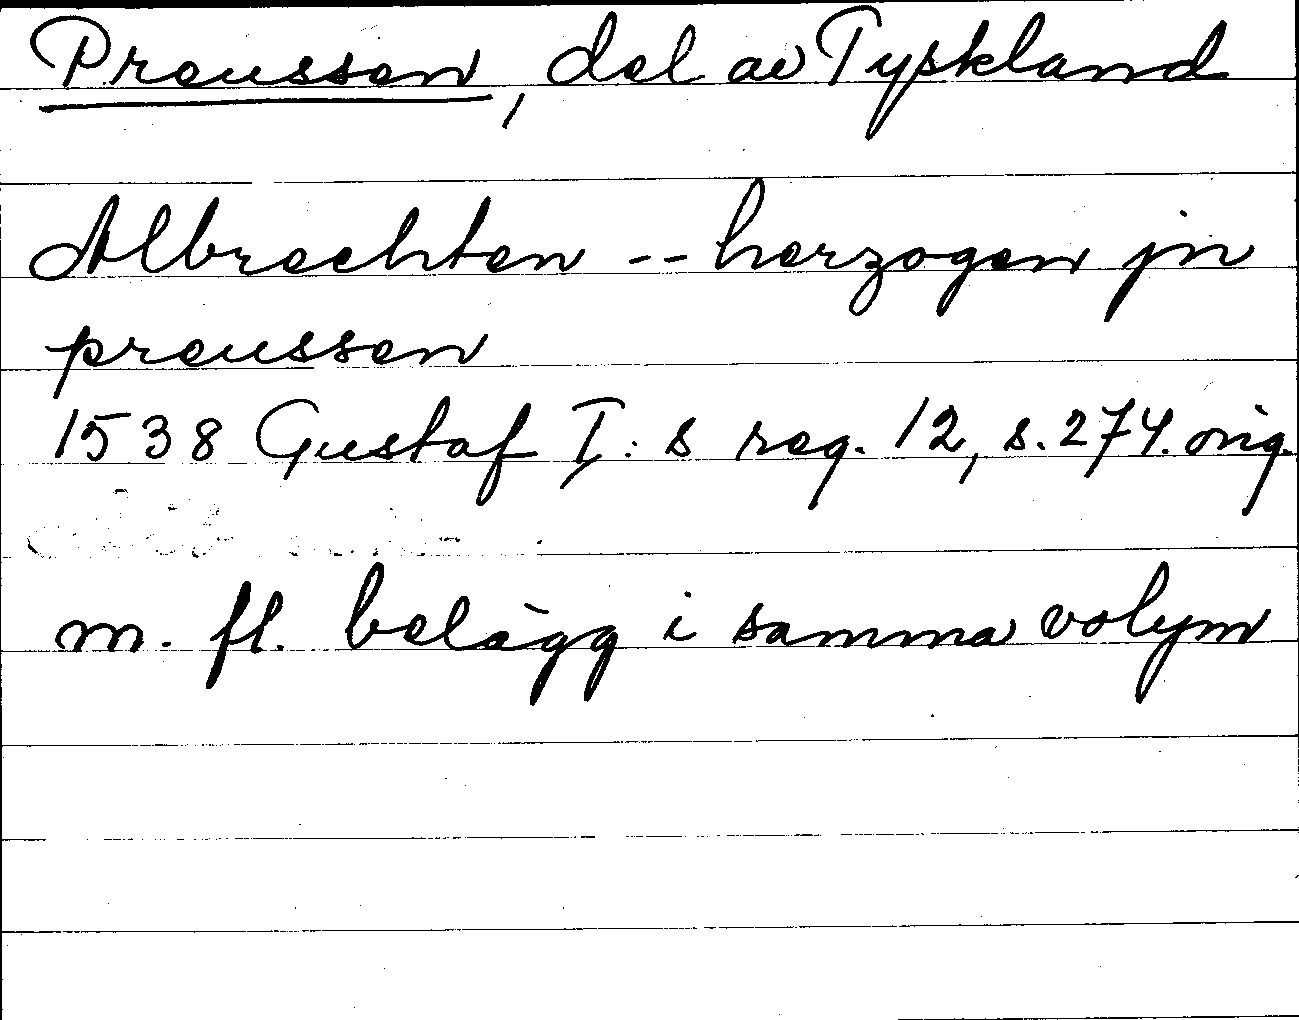 Preussen, del av Tyskland
Albrechten -- herzogen jn
preussen
1538 Gustaf I:s reg. 12, s. 274. orig.
m. fl. belägg i samma volym